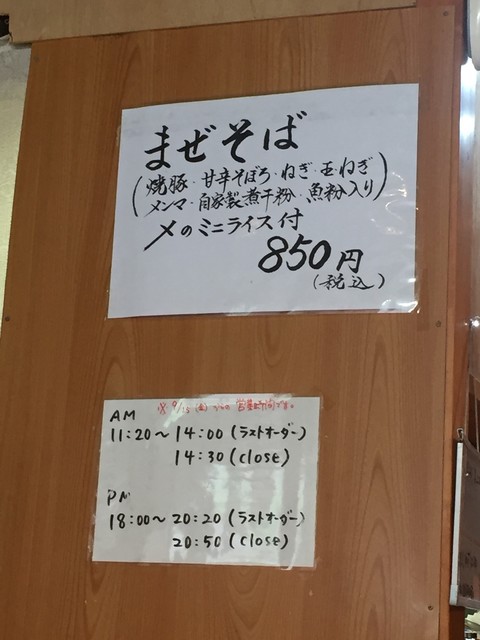 まぜそば
(焼豚・甘辛そぼろ・ねぎ・玉ねぎ
メンマ・自家製煮干粉・魚粉入り)
〆のミニライス付
850円
(税込)
AM
11:20~14:00(ラストオーダー)
14:30(close)
PM
18:00~20:20(ラストオーダー)
20:50(close)